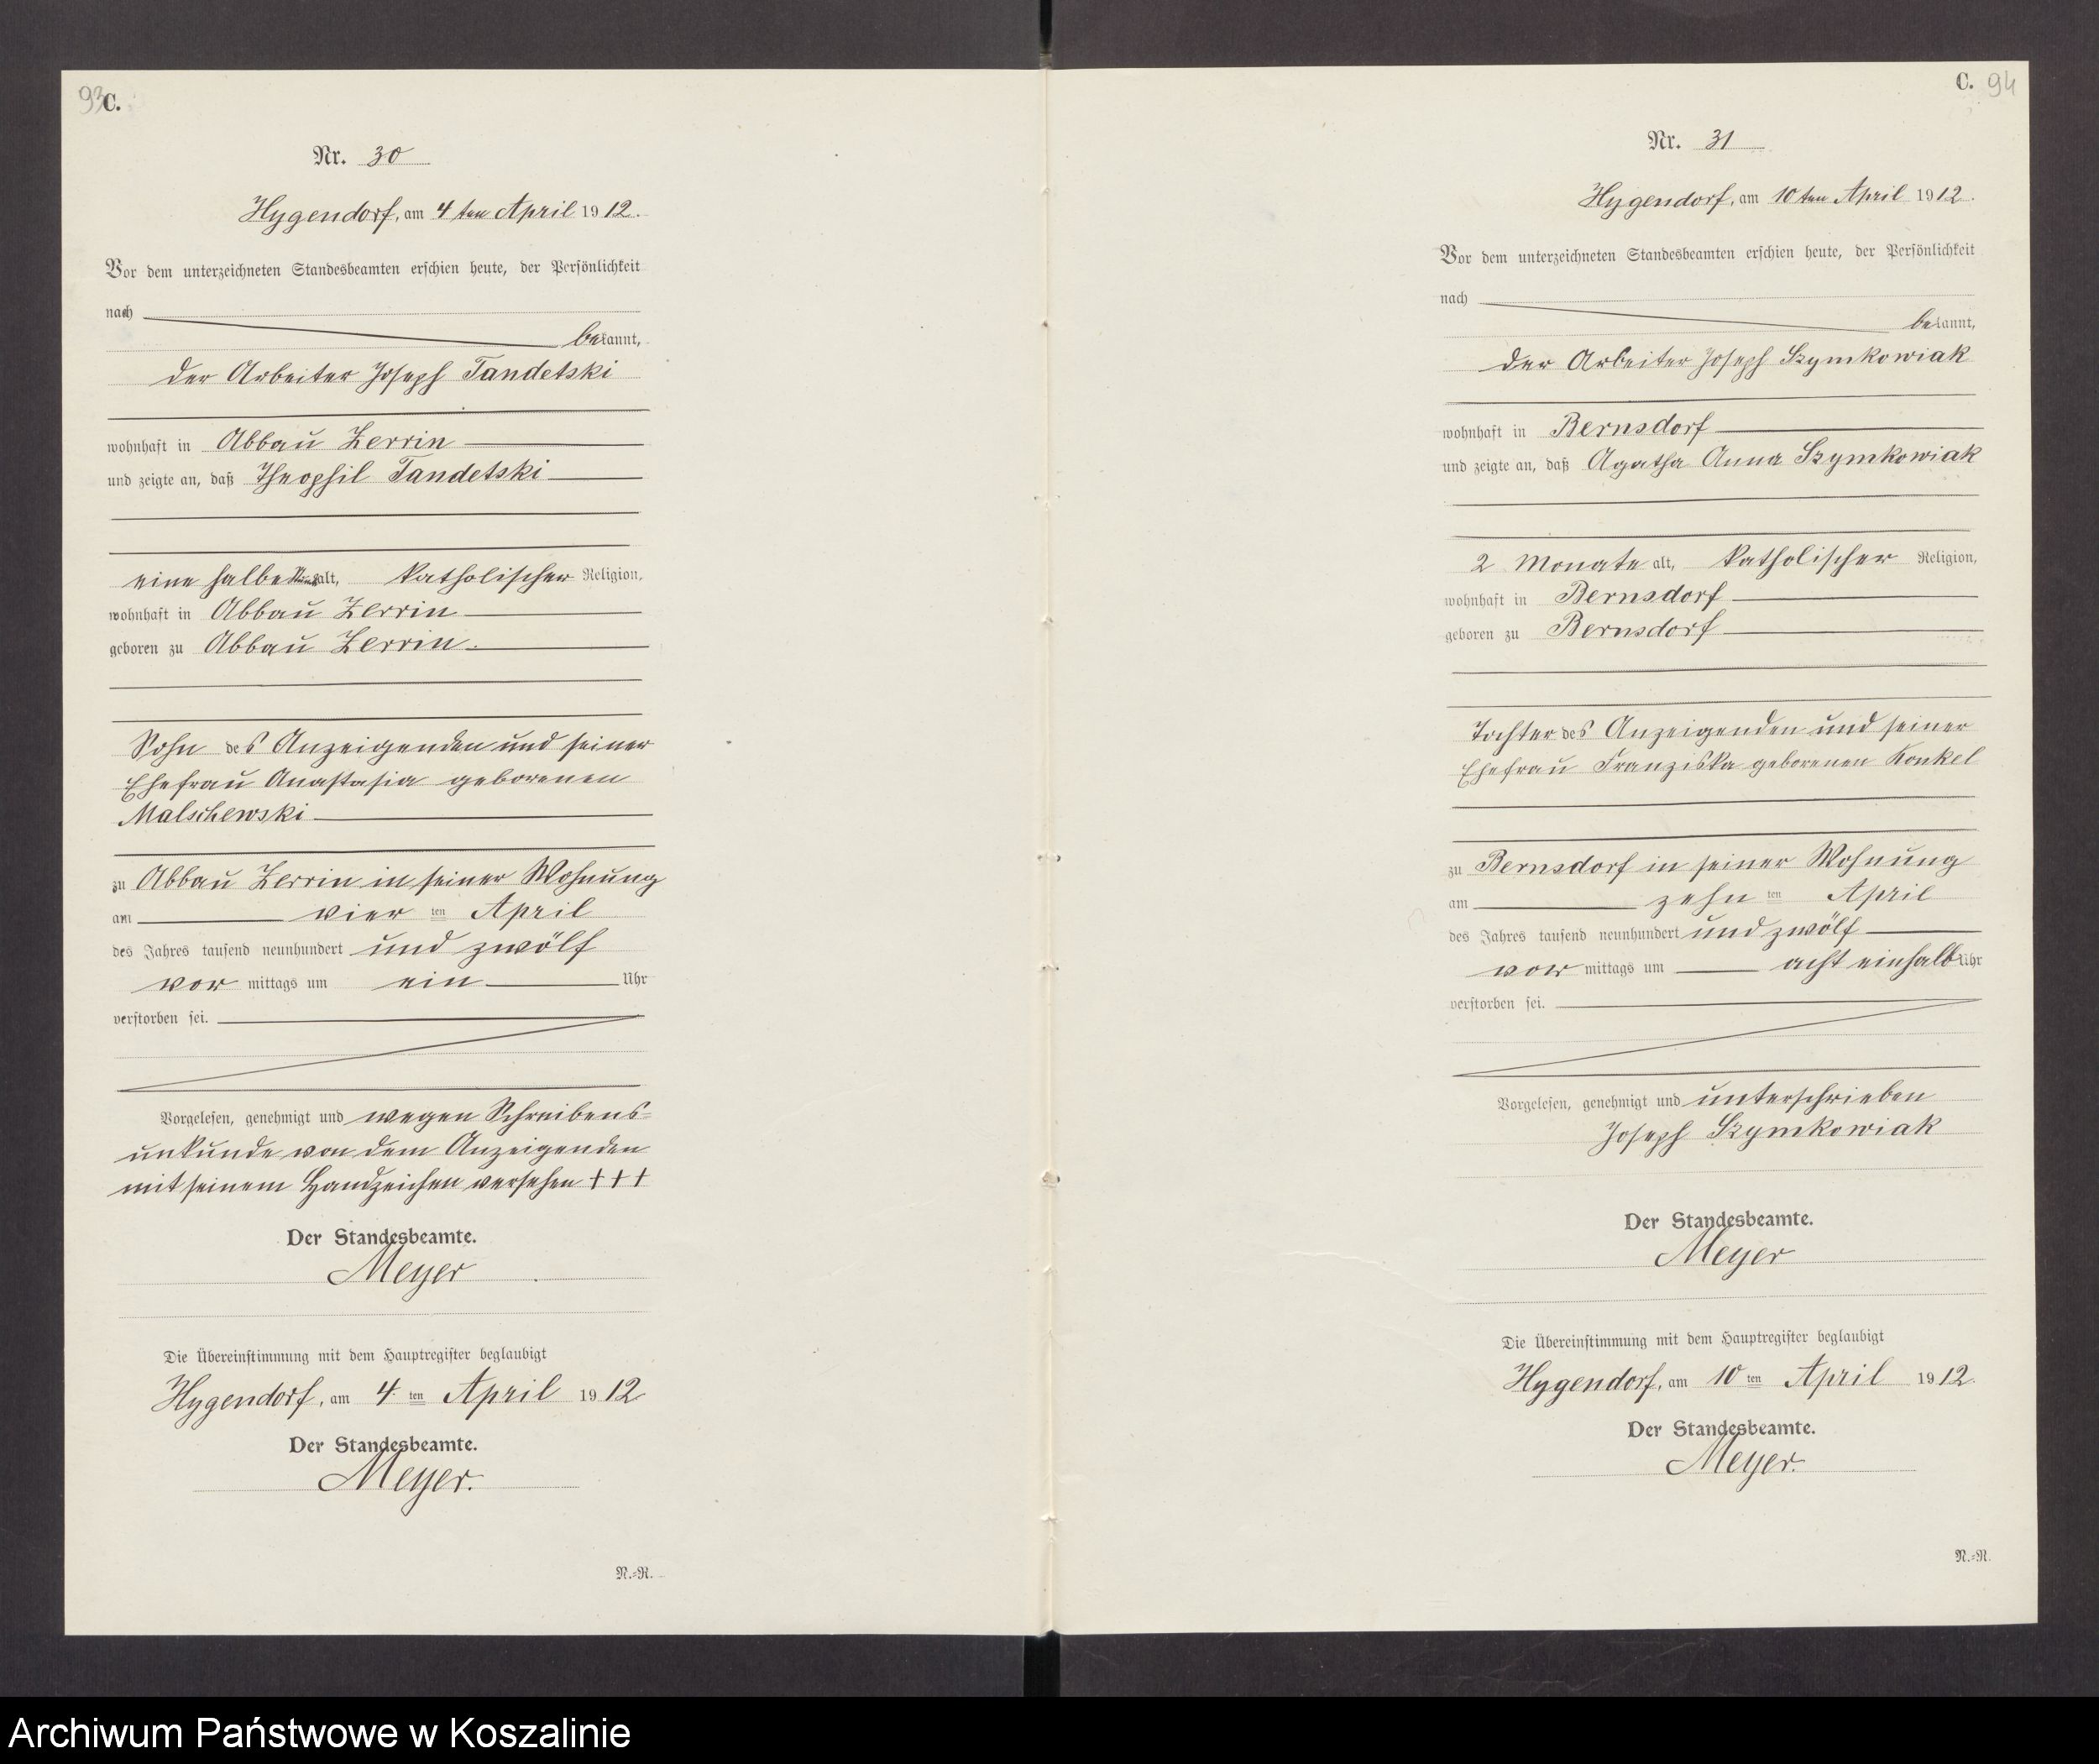 93 C.
Nr. 30
Hygendorf, am 4ten April 1912.
Vor dem unterzeichneten Standesbeamten erschien heute, der Persönlichkeit
nach
bekannt,
der Arbeiter Joseph Tandetzki
wohnhaft in Abbau Zerrin
und zeigte an, daß Theophil Tandetzki
eine halbe Stunde alt, katholischer Religion,
wohnhaft in Abbau Zerrin
geboren zu Abbau Zerrin.
Sohn des Anzeigenden und seiner
Ehefrau Anastasia geborenen
Malschewski
zu Abbau Zerrin in seiner Wohnung
am vier ten April
des Jahres tausend neunhundert und zwölf
vor mittags um ein Uhr
verstorben sei.
Vorgelesen, genehmigt und wegen Schreibens-
unkunde von dem Anzeigenden
mit seinem Handzeichen versehen +++
Der Standesbeamte.
Meyer
Die Übereinstimmung mit dem Hauptregister beglaubigt
Hygendorf, am 4ten April 1912
Der Standesbeamte.
Meyer.
N.=R.
C. 94
Nr. 31
Hygendorf, am 10ten April 1912.
Vor dem unterzeichneten Standesbeamten erschien heute, der Persönlichkeit
nach
bekannt,
der Arbeiter Joseph Szymkowiak
wohnhaft in Bernsdorf
und zeigte an, daß Agatha Anna Szymkowiak
2 Monate alt, katholischer Religion,
wohnhaft in Bernsdorf
geboren zu Bernsdorf
Tochter des Anzeigenden und seiner
Ehefrau Franziska geborenen Konkel
zu Bernsdorf in seiner Wohnung
am zehn ten April
des Jahres tausend neunhundert und zwölf
vor mittags um acht einhalb Uhr
verstorben sei.
Vorgelesen, genehmigt und unterschrieben
Joseph Szymkowiak
Der Standesbeamte.
Meyer
Die Übereinstimmung mit dem Hauptregister beglaubigt
Hygendorf, am 10ten April 1912.
Der Standesbeamte.
Meyer.
N.=R.
Archiwum Państwowe w Koszalinie